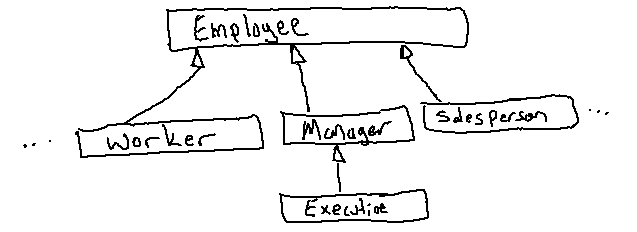 Employee
... Worker
Manager
Salesperson ...
Executive